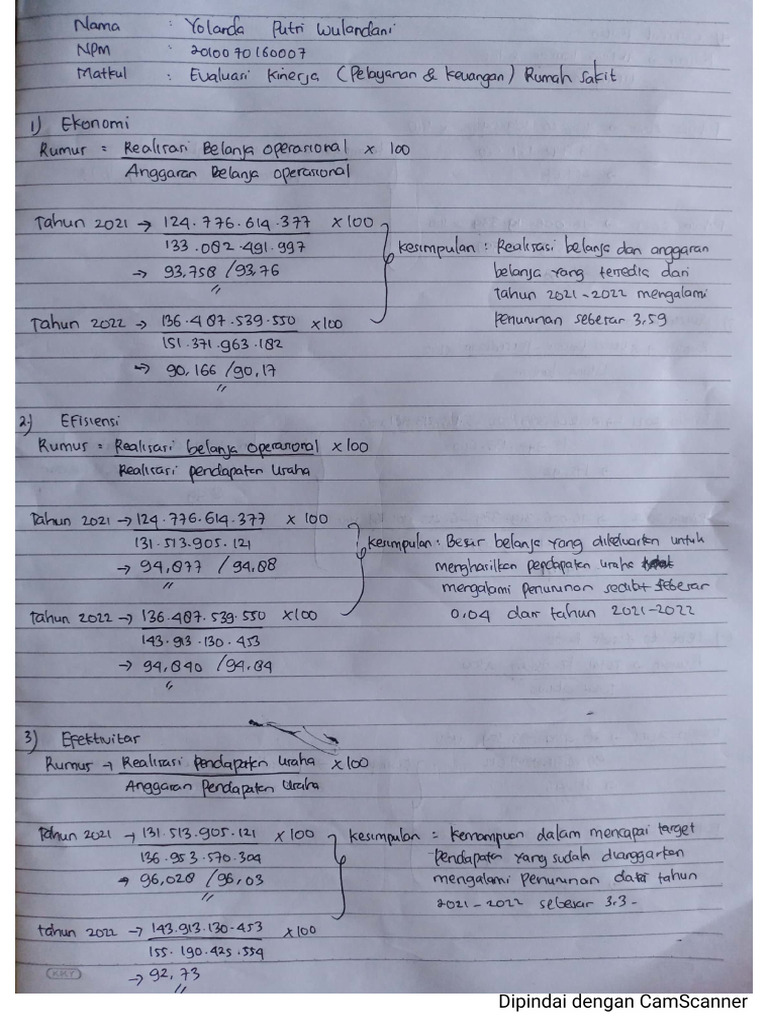 Nama : Yolanda Putri Wulandani
NPM : 2010070160007
Matkul : Evaluasi Kinerja (Pelayanan & Keuangan) Rumah Sakit
1) Ekonomi
Rumus = Realisasi Belanja Operasional x 100
Anggaran Belanja Operasional
Tahun 2021 → 124.776.614.377 x 100
133.082.491.997
→ 93,758 / 93,76
Kesimpulan : Realisasi belanja dan anggaran
belanja yang tersedia dari
tahun 2021-2022 mengalami
Penurunan sebesar 3,59
Tahun 2022 → 136.487.539.550 x 100
151.371.963.182
→ 90,166 / 90,17
2) Efisiensi
Rumus = Realisasi belanja operasional x 100
Realisasi pendapatan Usaha
Tahun 2021 → 124.776.614.377 x 100
131.513.905.121
→ 94,877 / 94,88
Kesimpulan : Besar belanja yang dikeluarkan untuk
menghasilkan pendapatan usaha
mengalami penurunan sedikit sebesar
0,04 dari tahun 2021-2022
Tahun 2022 → 136.487.539.550 x 100
143.913.130.453
→ 94,840 / 94,84
3) Efektivitas
Rumus → Realisasi Pendapatan Usaha x 100
Anggaran Pendapatan Usaha
Tahun 2021 → 131.513.905.121 x 100
136.953.570.304
→ 96,028 / 96,03
Kesimpulan = Kemampuan dalam mencapai target
Pendapatan yang sudah dianggarkan
mengalami Penurunan dari tahun
2021-2022 sebesar 3.3-
tahun 2022 → 143.913.130.453 x 100
155.190.425.554
→ 92,73
KKY
Dipindai dengan CamScanner